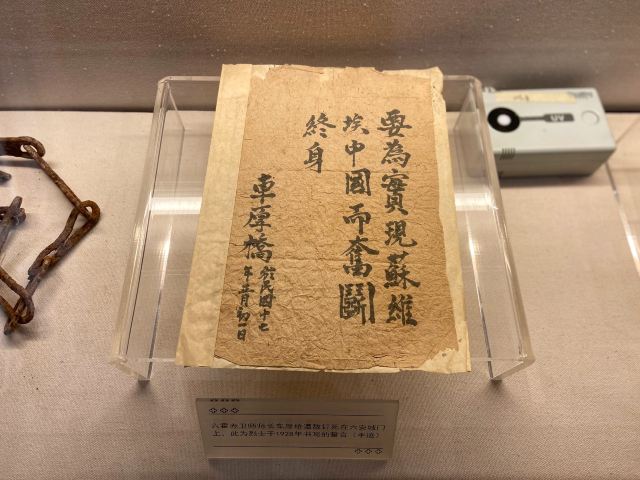 要為實現蘇維
埃中國而奮鬪
終身
車厚橋 於民國十七
年 月初一日
UV
六霍赤卫师师长车厚桥遭敌钉死在六安城门
上，此为烈士于1928年书写的誓言（手迹）